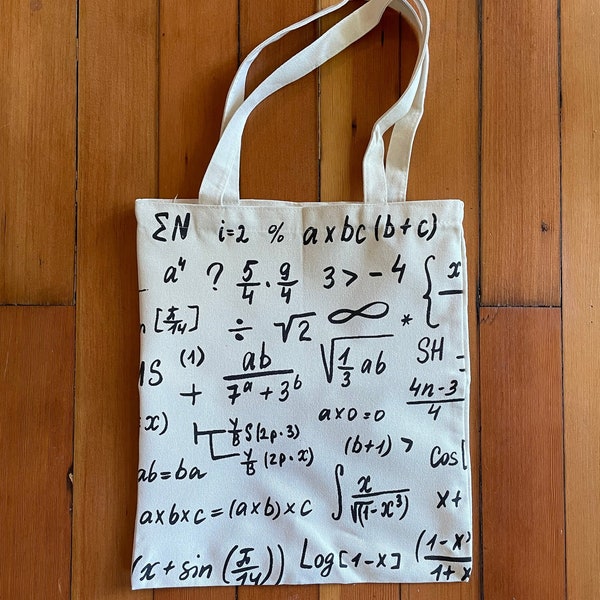 ΣN i=2 % axbc(b+c)
a⁴ ? 5/4 · 9/4 3 > -4 { x
[π/14] ÷ √2 ∞ *
(1) + ab/(7ᵃ+3ᵇ) √(1/3 ab) SH -
4n-3/4
x) a×0=0
y/B S(2p·3) (b+1) > cos[
y/B (2p·x)
ab=ba ∫ x/√(1-x³) x+
axbxc=(axb)xc
(x+sin(π/14)) Log[1-x] (1-x/1+x